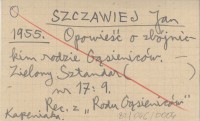 O
SZCZAWIEJ Jan
1955. Opowieść o zbójnic-
kim rodzie Gąsieniców.
Zielony Sztandar (    )
nr 17: 9.
Rec. z „Rodu Gąsieniców"
Kapeniaka.